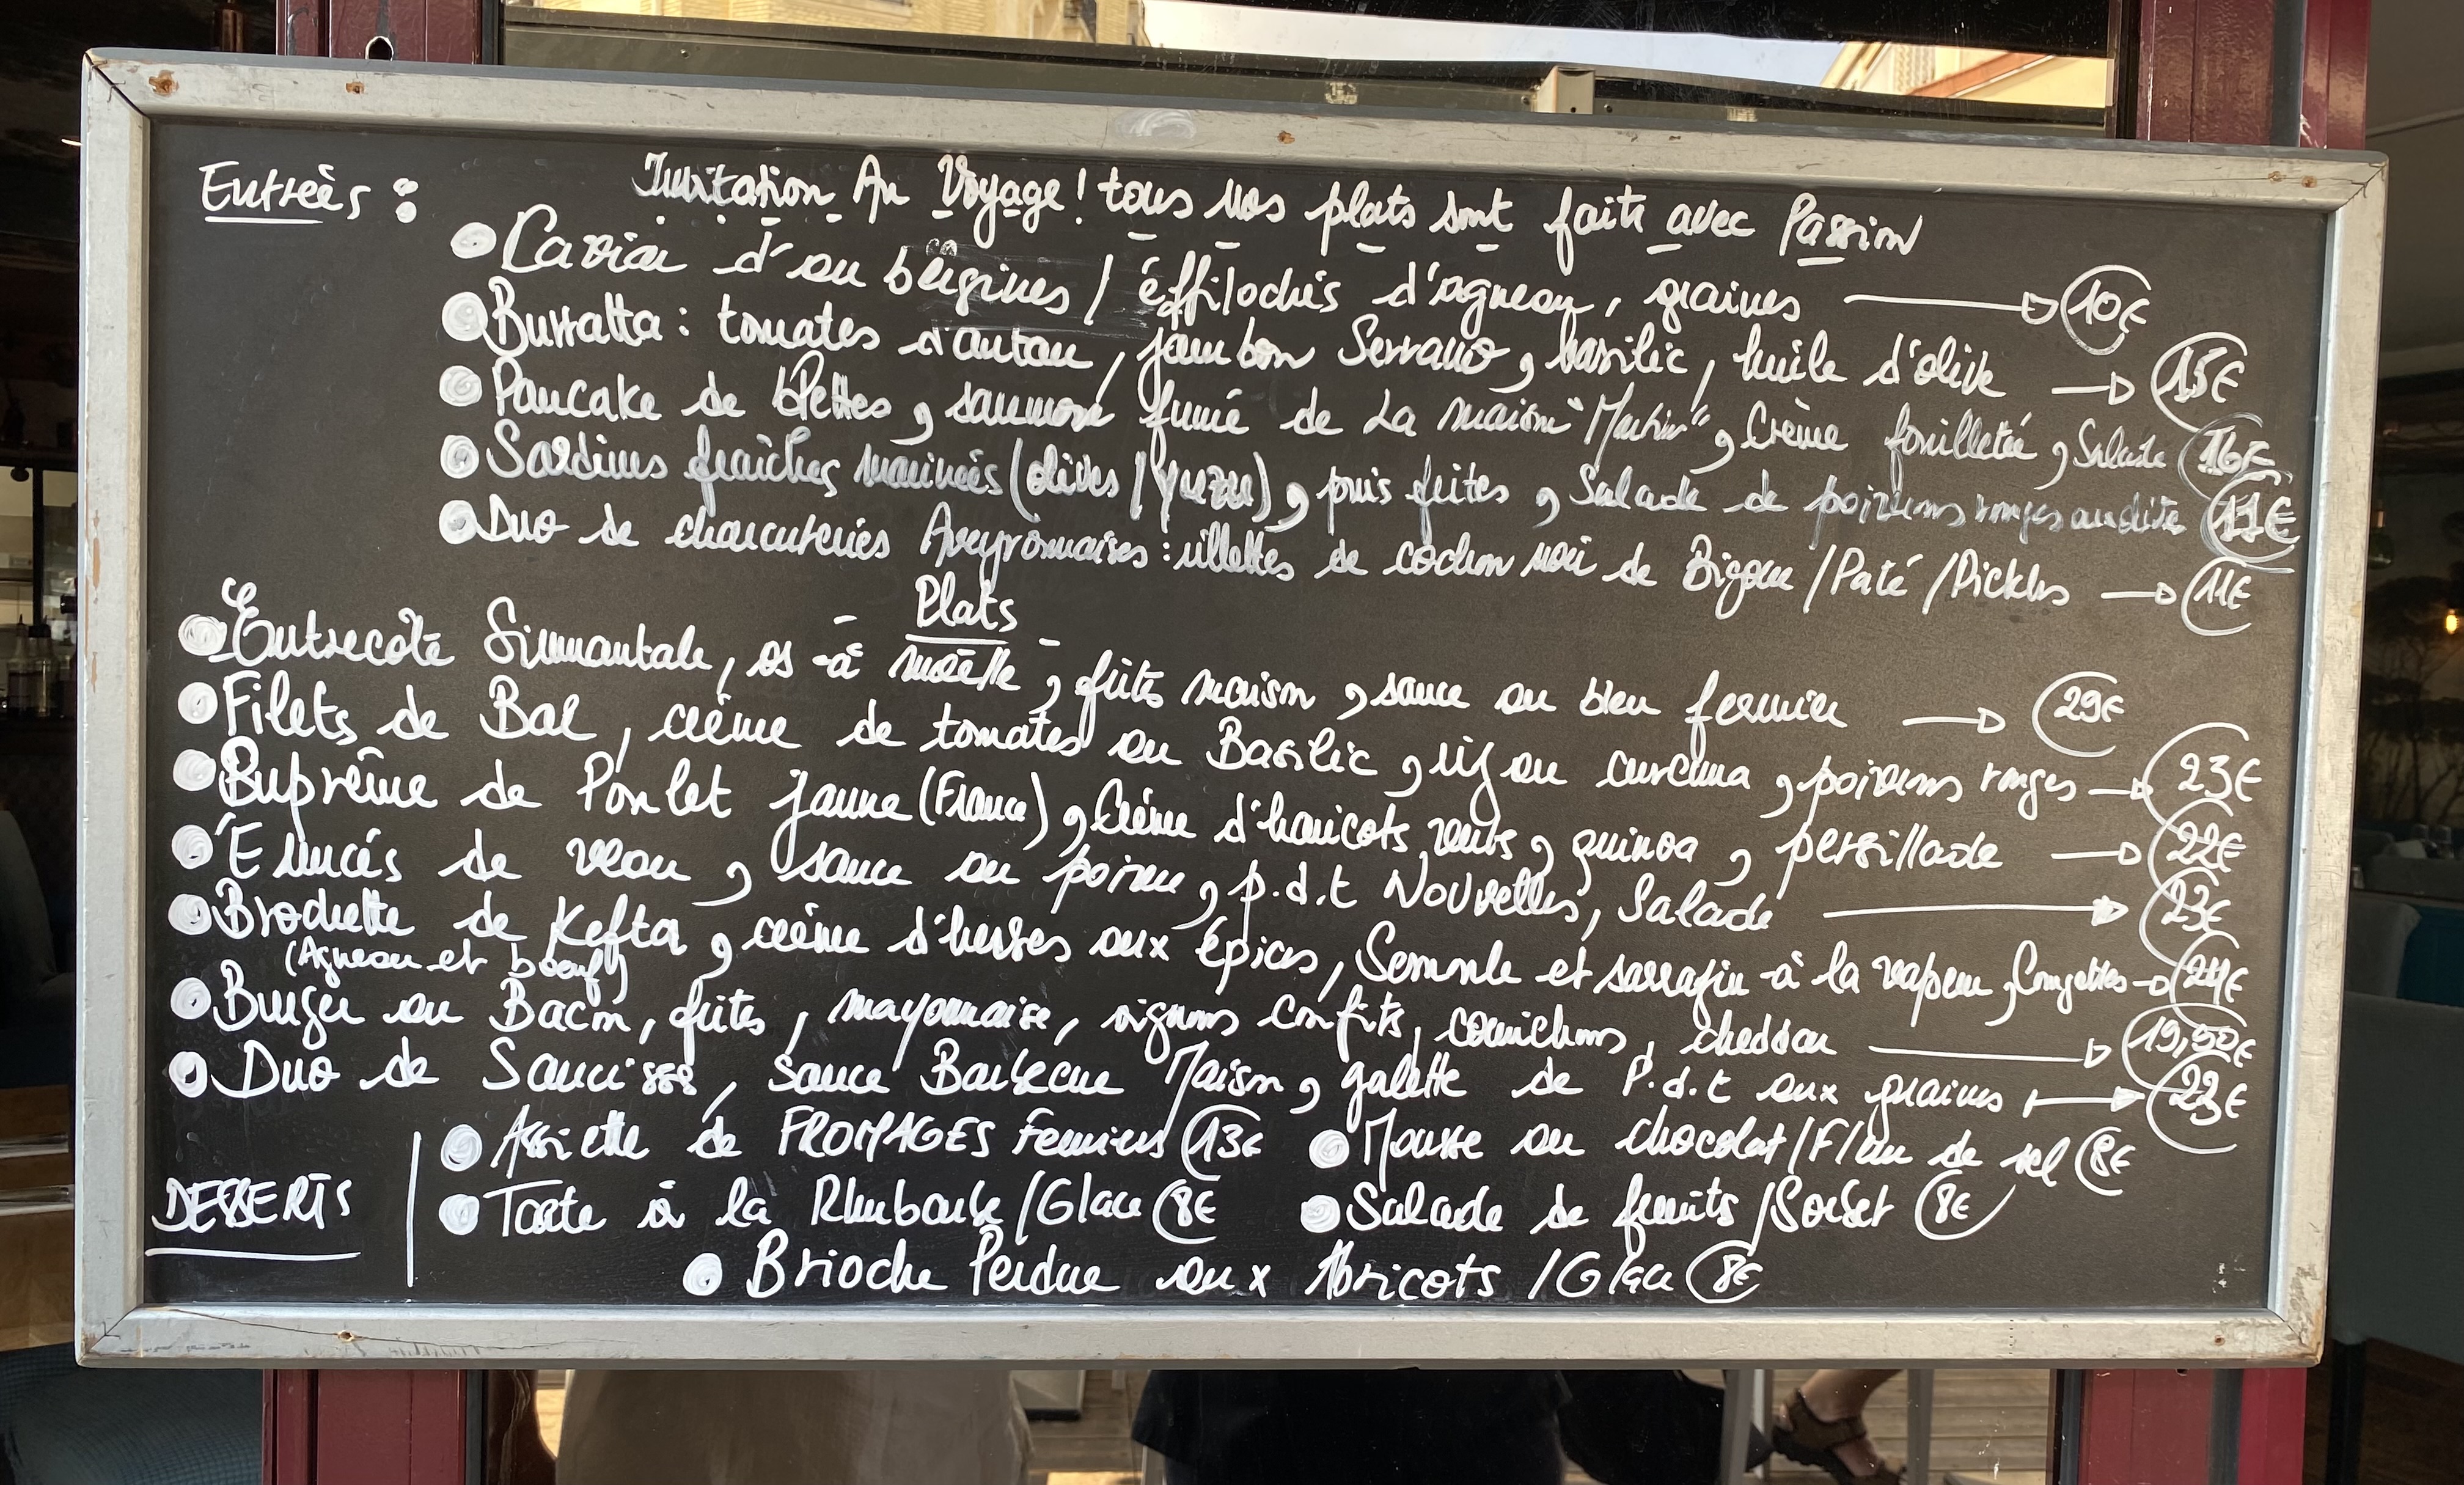 Entrées :
Invitation Au Voyage ! tous nos plats sont faits avec Passion
Caviar d'au bergines / éffilochés d'agneau, graines 10€
Burratta : tomates d'antan, jambon Serrano, basilic, huile d'olive 15€
Pancake de blettes, saumon fumé de La maison "Martin", Crème fouilletée, Salade 16€
Sardines fraîches marinées (olives / yuzu), puis frites, Salade de poivrons rouges 11€
Duo de charcuteries Aveyronnaises : rillettes de cochon noir de Bigorre / Paté / Pickles 11€
Plats
Entrecôte Simmantale, os -à moëlle, frites maison, sauce au bleu fermier 29€
Filets de Bar, crème de tomates au Basilic, riz au curcuma, poivrons rouges 23€
Suprême de Poulet jaune (France), Crème d'haricots verts, quinoa, persillade 22€
Émincés de veau, sauce au poivre, p.d.t Nouvelles, Salade 23€
Brochette de Kefta, crème d'herbes aux épices, Semoule et sarrasin -à la vapeur, Courgettes 24€
(Agneau et boeuf)
Burger au Bacon, frites, mayonnaise, oignons confits, cornichons, cheddar 19,50€
Duo de Saucisses, sauce Barbecue Maison, galette de P.d.t aux graines 23€
DESSERTS
Assiette de FROMAGES Fermiers 13€
Mousse au chocolat / Fleur de sel 8€
Tarte à la Rhubarbe / Glace 8€
Salade de fruits / Sorbet 8€
Brioche Perdue aux Abricots / Glace 8€